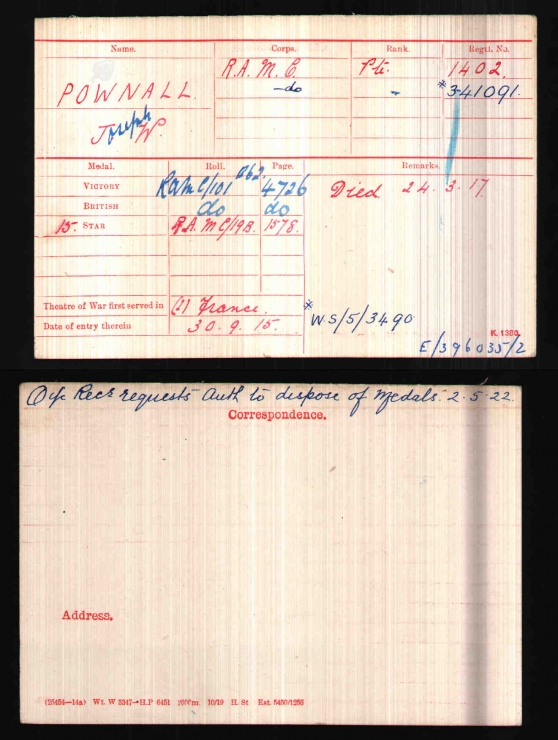 Name. Corps. Rank. Regtl. No.
POWNALL. R.A.M.C. Pte. 1402.
Joseph W. -do- " * 341091.
Medal. Roll. Page. Remarks.
VICTORY RAMC/101 B62. 4726 Died 24.3.17.
BRITISH do do
15. STAR R.A.M.C/19B. 1578.
Theatre of War first served in (1) France.
Date of entry therein 30.9.15.
* WS/5/3490
K. 1380.
E/396035/2
O i/c Recs requests Auth to dispose of Medals. 2.5.22.
Correspondence.
Address.
(25454—14a) Wt. W 5347— H.P 6451 10/19 H. St Est. 5450/1256